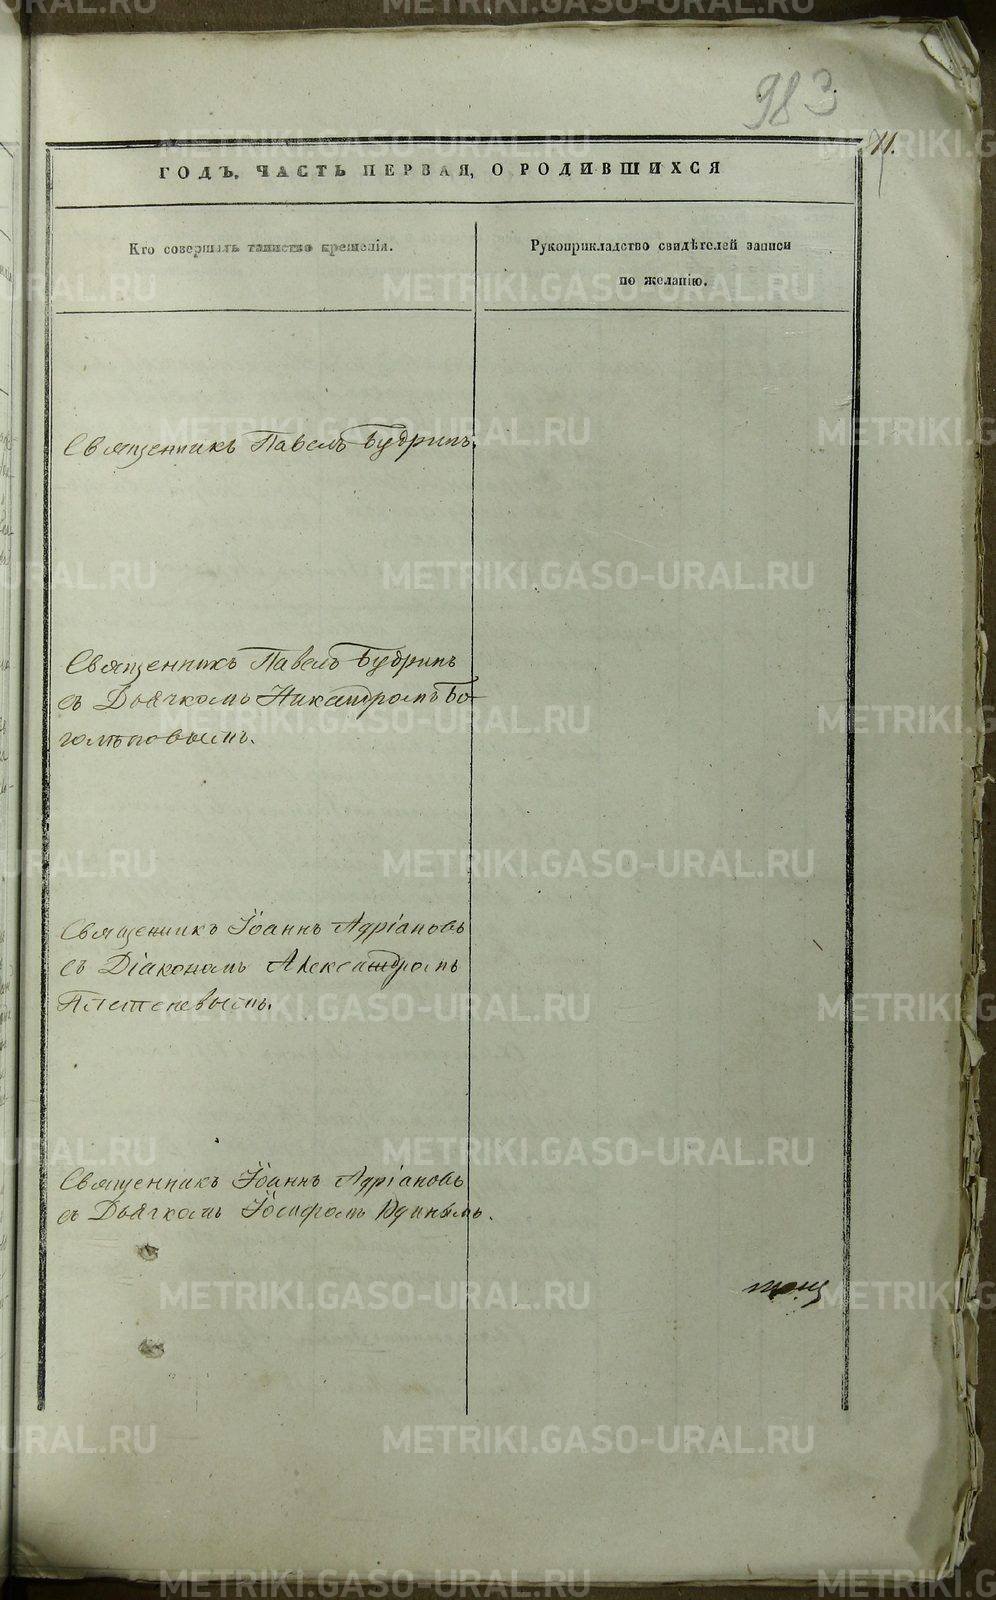 983
11.
ГОДЪ. ЧАСТЬ ПЕРВАЯ, О РОДИВШИХСЯ
Кто совершалъ таинство крещенія.
Рукоприкладство свидѣтелей записи
по желанію.
Священникъ Павелъ Будринъ.
Священникъ Павелъ Будринъ
съ Дьячкомъ Никандромъ Бо-
голѣповымъ.
Священникъ Іоаннъ Адріановъ
съ Діакономъ Александромъ
Плетеневымъ.
Священникъ Іоаннъ Адріановъ
съ Дьячкомъ Іосифомъ Юдинымъ.
METRIKI.GASO-URAL.RU